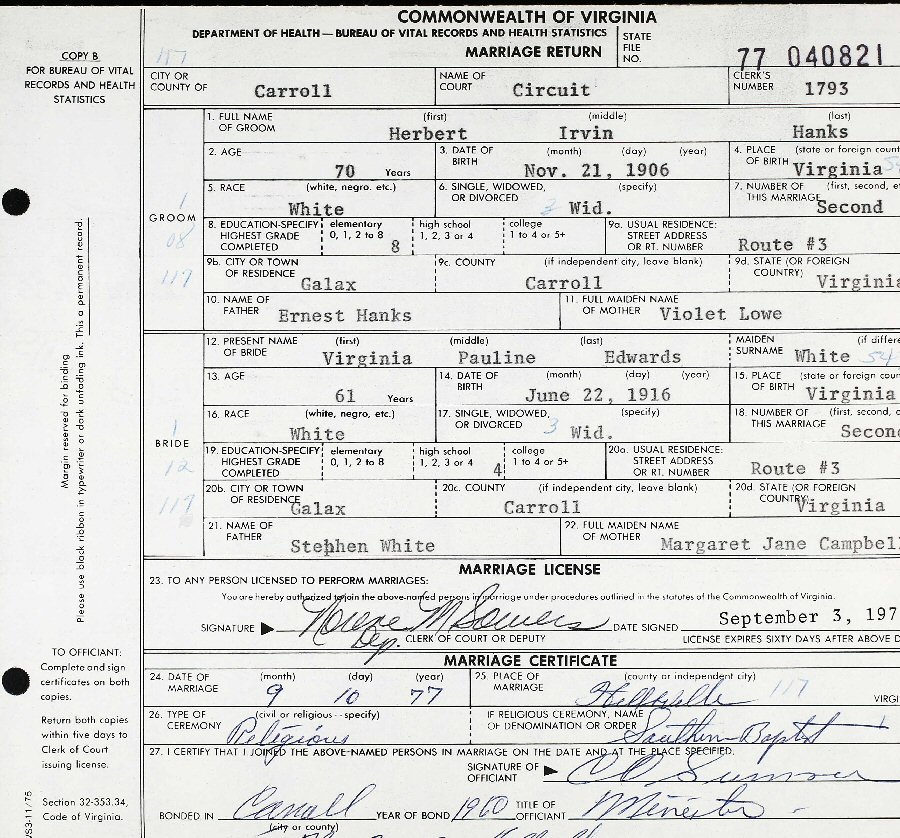 COMMONWEALTH OF VIRGINIA
DEPARTMENT OF HEALTH — BUREAU OF VITAL RECORDS AND HEALTH STATISTICS
MARRIAGE RETURN
STATE FILE NO. 77 040821
COPY B
FOR BUREAU OF VITAL RECORDS AND HEALTH STATISTICS
117
CITY OR COUNTY OF Carroll NAME OF COURT Circuit CLERK'S NUMBER 1793
GROOM
1
08
117
1. FULL NAME OF GROOM (first) Herbert (middle) Irvin (last) Hanks
2. AGE 70 Years 3. DATE OF BIRTH (month) (day) (year) Nov. 21, 1906 4. PLACE OF BIRTH (state or foreign count Virginia
5. RACE (white, negro, etc.) White 6. SINGLE, WIDOWED, OR DIVORCED (specify) Wid. 7. NUMBER OF THIS MARRIAGE (first, second, e Second
8. EDUCATION-SPECIFY HIGHEST GRADE COMPLETED elementary 0, 1, 2 to 8 8 high school 1, 2, 3 or 4 college 1 to 4 or 5+ 9a. USUAL RESIDENCE: STREET ADDRESS OR RT. NUMBER Route #3
9b. CITY OR TOWN OF RESIDENCE Galax 9c. COUNTY (if independent city, leave blank) Carroll 9d. STATE (OR FOREIGN COUNTRY) Virginia
10. NAME OF FATHER Ernest Hanks 11. FULL MAIDEN NAME OF MOTHER Violet Lowe
BRIDE
1
12
117
12. PRESENT NAME OF BRIDE (first) Virginia (middle) Pauline (last) Edwards MAIDEN SURNAME (if differe White 54
13. AGE 61 Years 14. DATE OF BIRTH (month) (day) (year) June 22, 1916 15. PLACE OF BIRTH (state or foreign coun Virginia
16. RACE (white, negro, etc.) White 17. SINGLE, WIDOWED, OR DIVORCED (specify) 3 Wid. 18. NUMBER OF THIS MARRIAGE (first, second, e Secon
19. EDUCATION-SPECIFY HIGHEST GRADE COMPLETED elementary 0, 1, 2 to 8 high school 1, 2, 3 or 4 4 college 1 to 4 or 5+ 20a. USUAL RESIDENCE: STREET ADDRESS OR RT. NUMBER Route #3
20b. CITY OR TOWN OF RESIDENCE Galax 20c. COUNTY (if independent city, leave blank) Carroll 20d. STATE (OR FOREIGN COUNTRY) Virginia
21. NAME OF FATHER Stephen White 22. FULL MAIDEN NAME OF MOTHER Margaret Jane Campbel
MARRIAGE LICENSE
23. TO ANY PERSON LICENSED TO PERFORM MARRIAGES:
You are hereby authorized to join the above-named persons in marriage under procedures outlined in the statutes of the Commonwealth of Virginia.
SIGNATURE Dep. CLERK OF COURT OR DEPUTY DATE SIGNED September 3, 197
LICENSE EXPIRES SIXTY DAYS AFTER ABOVE D
MARRIAGE CERTIFICATE
24. DATE OF MARRIAGE (month) 9 (day) 10 (year) 77 25. PLACE OF MARRIAGE (county or independent city) 117 VIRG
26. TYPE OF CEREMONY (civil or religious--specify) Religious IF RELIGIOUS CEREMONY, NAME OF DENOMINATION OR ORDER Southern Baptist
27. I CERTIFY THAT I JOINED THE ABOVE-NAMED PERSONS IN MARRIAGE ON THE DATE AND AT THE PLACE SPECIFIED.
SIGNATURE OF OFFICIAL
BONDED IN Carroll (city or county) YEAR OF BOND 1960 TITLE OF OFFICIAL Minister
Margin reserved for binding
Please use black ribbon in typewriter or dark unfading ink. This a permanent record.
TO OFFICIAL:
Complete and sign certificates on both copies.
Return both copies within five days to Clerk of Court issuing license.
Section 32-353.34, Code of Virginia.
VS3-11/75